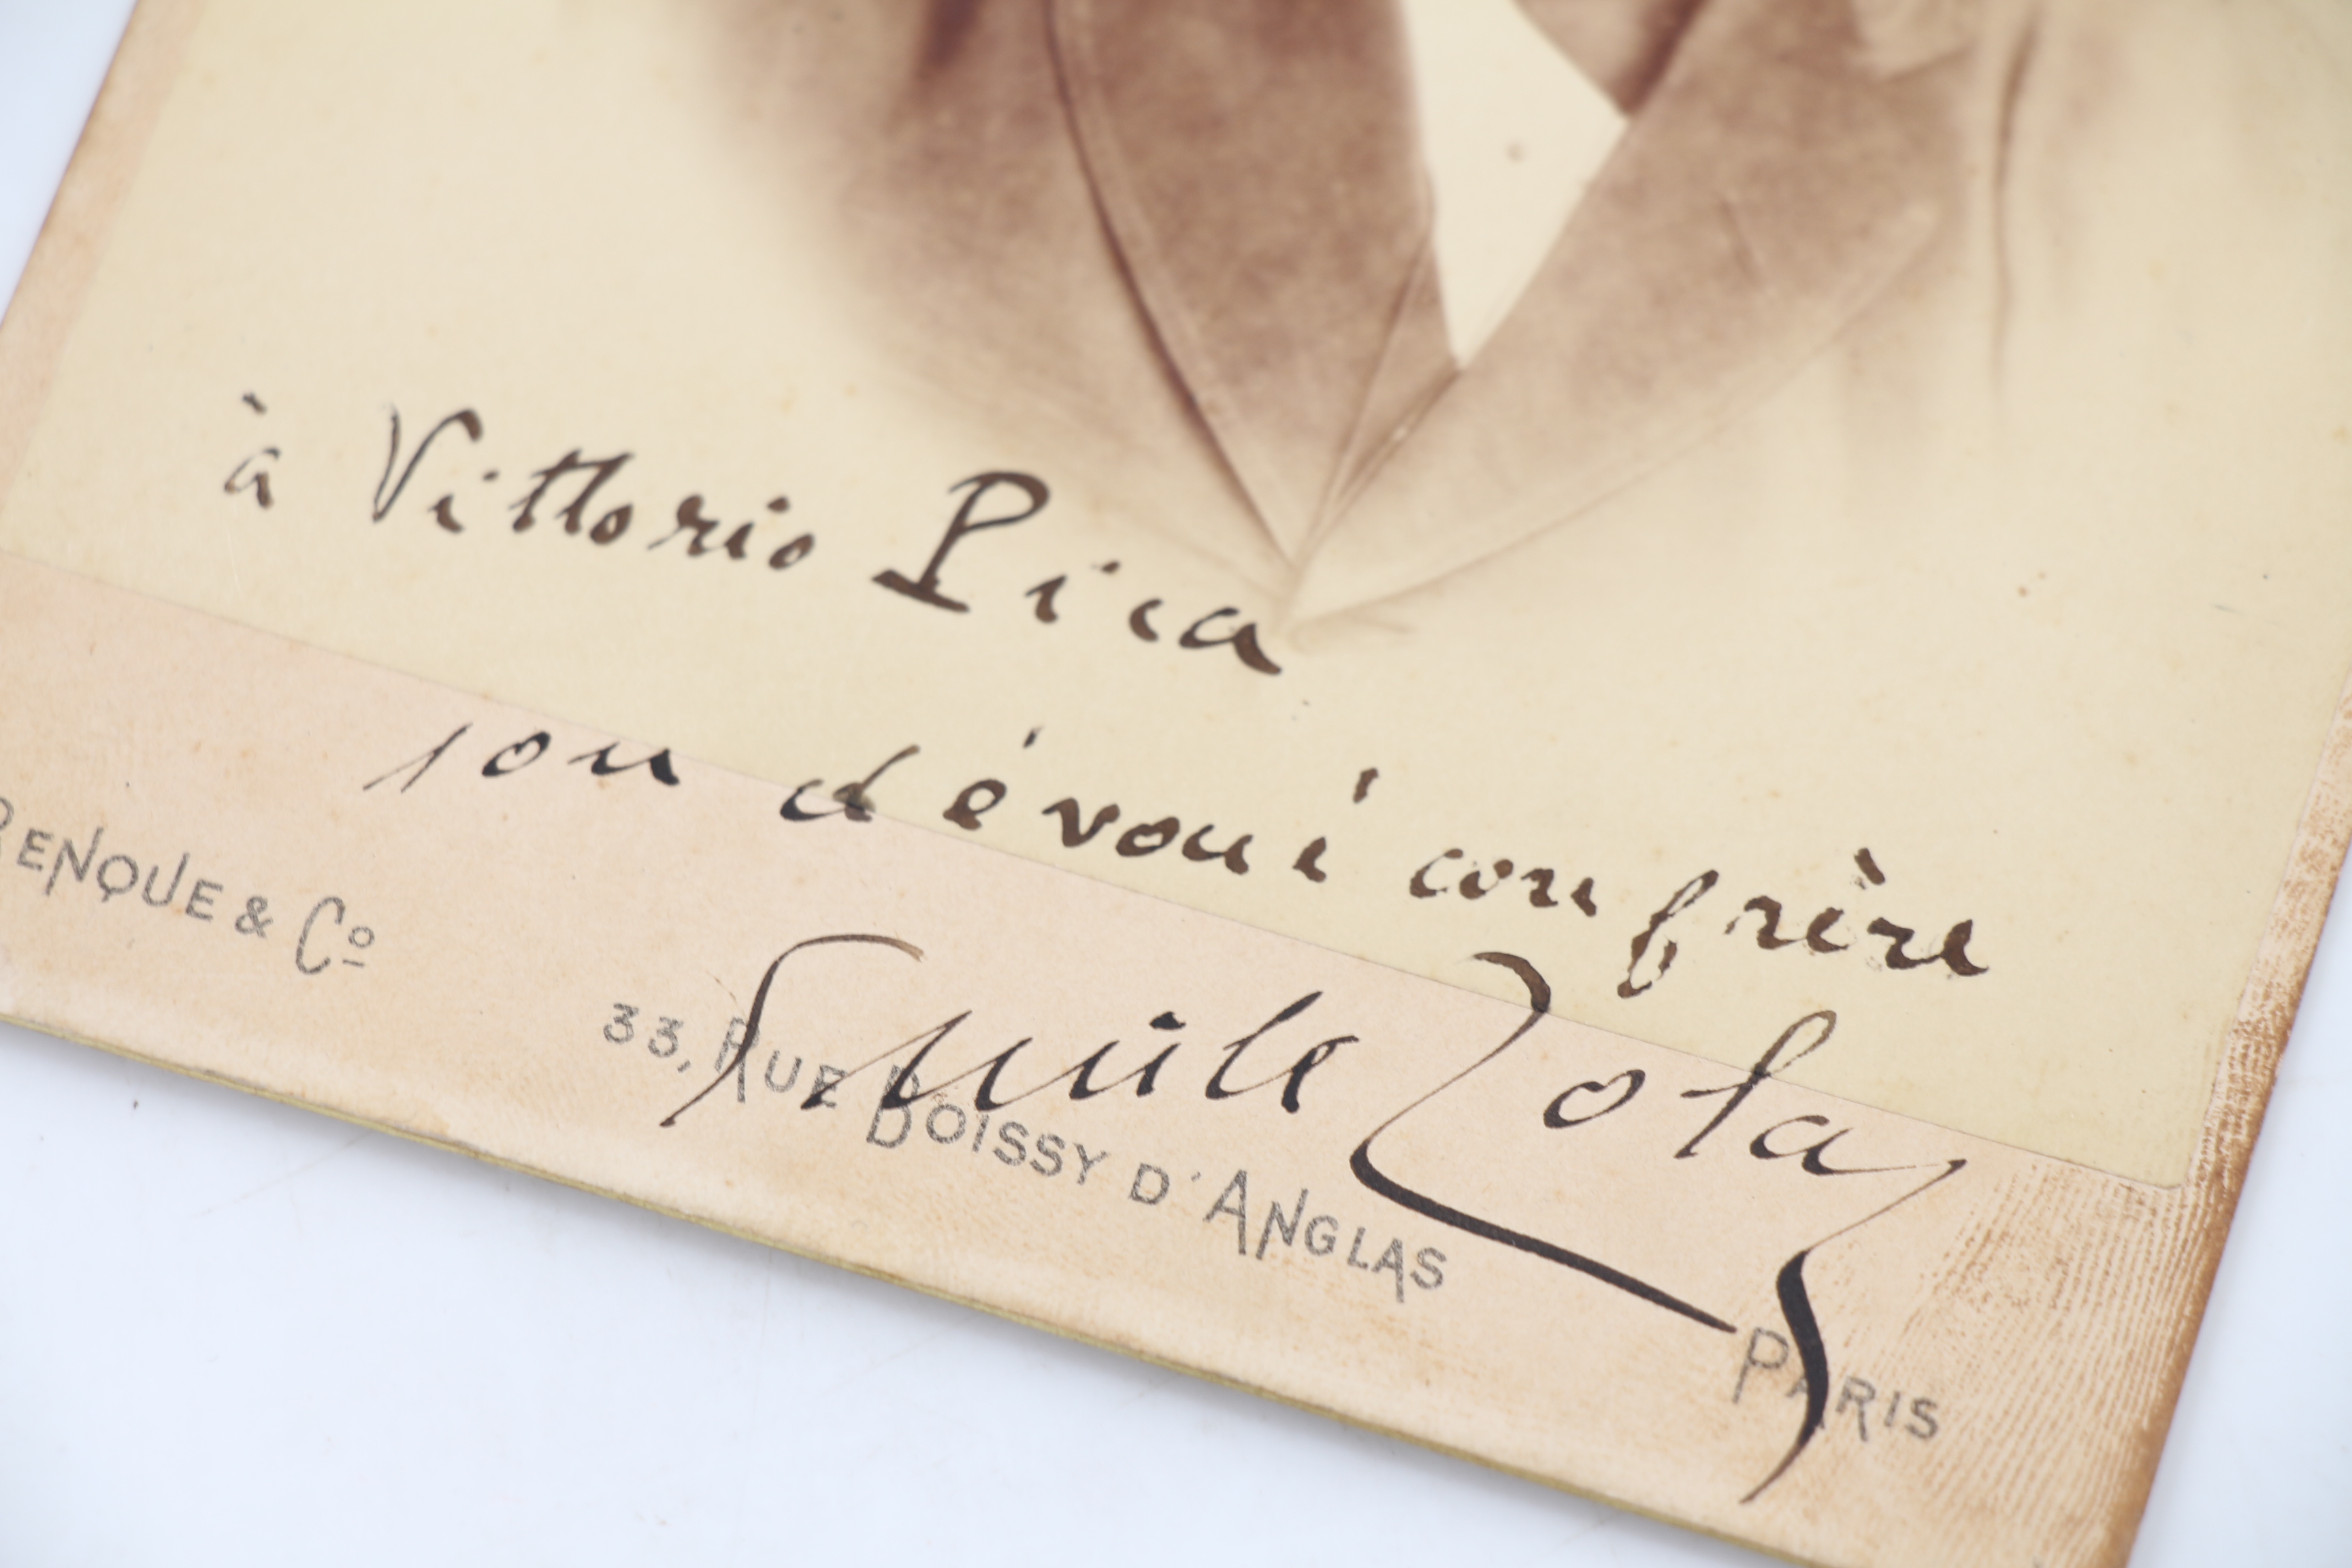 à Vittorio Pica
son dévoué confrère
Emile Zola
RENQUE & Co
33, RUE BOISSY D'ANGLAS
PARIS